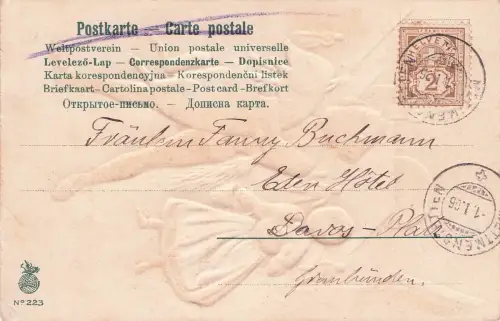 Postkarte — Carte postale
Weltpostverein — Union postale universelle
Levelező-Lap — Correspondenzkarte — Dopisnice
Karta korespondencyjna — Korespondenční listek
Briefkaart - Cartolina postale - Post card - Brefkort
Открытое-письмо. — Дописна карта.
2
Fräulein Fanny Buchmann
Eden Hôtel
Davos-Platz
Graubünden.
-1.I.06
No 223